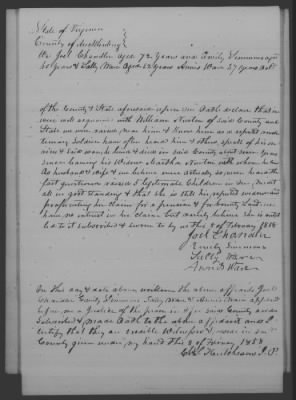 State of Virginia
County of Mecklenburg
We Joel Chandler aged 72 Years and Emily Simmons aged
60 years & Sally Ware aged 62 Years Annis Ware 57 years old
of the County & State aforesaid upon our Oath declare that we
were well acquainted with William Newton of said County and
State we were raised near him & knew him as a reputed revolu
tionary Soldier have often heard him & others speak of his ser
vice & lived near him & died in said County about Years
since leaving his Widow Martha Newton with whom he lived
As husband & wife & we believe were actually so we never heard the
fact questioned raised 5 legitimate Children in
all in good standing & that she is still his reputed widow and
prosecuting her claim for a pension & for bounty Land we
have no interest in her claim but verily believe she is entit
led to it subscribed & sworn to by us this 8 of February 1858
Joel Chandler
Emily Simmons
Sally Ware
Annis Ware
On this day & date above written the above affiants Joel
Chandler Emily Simmons Sally Ware & Annis Ware appeared
before me a Justice of the peace in & for said County and
subscribed & made Oath to the above affidavit and I
certify that they are credible Witnesses & reside in said
County given under my hand this 8 of February 1858
Chas Hutcheson J. P.